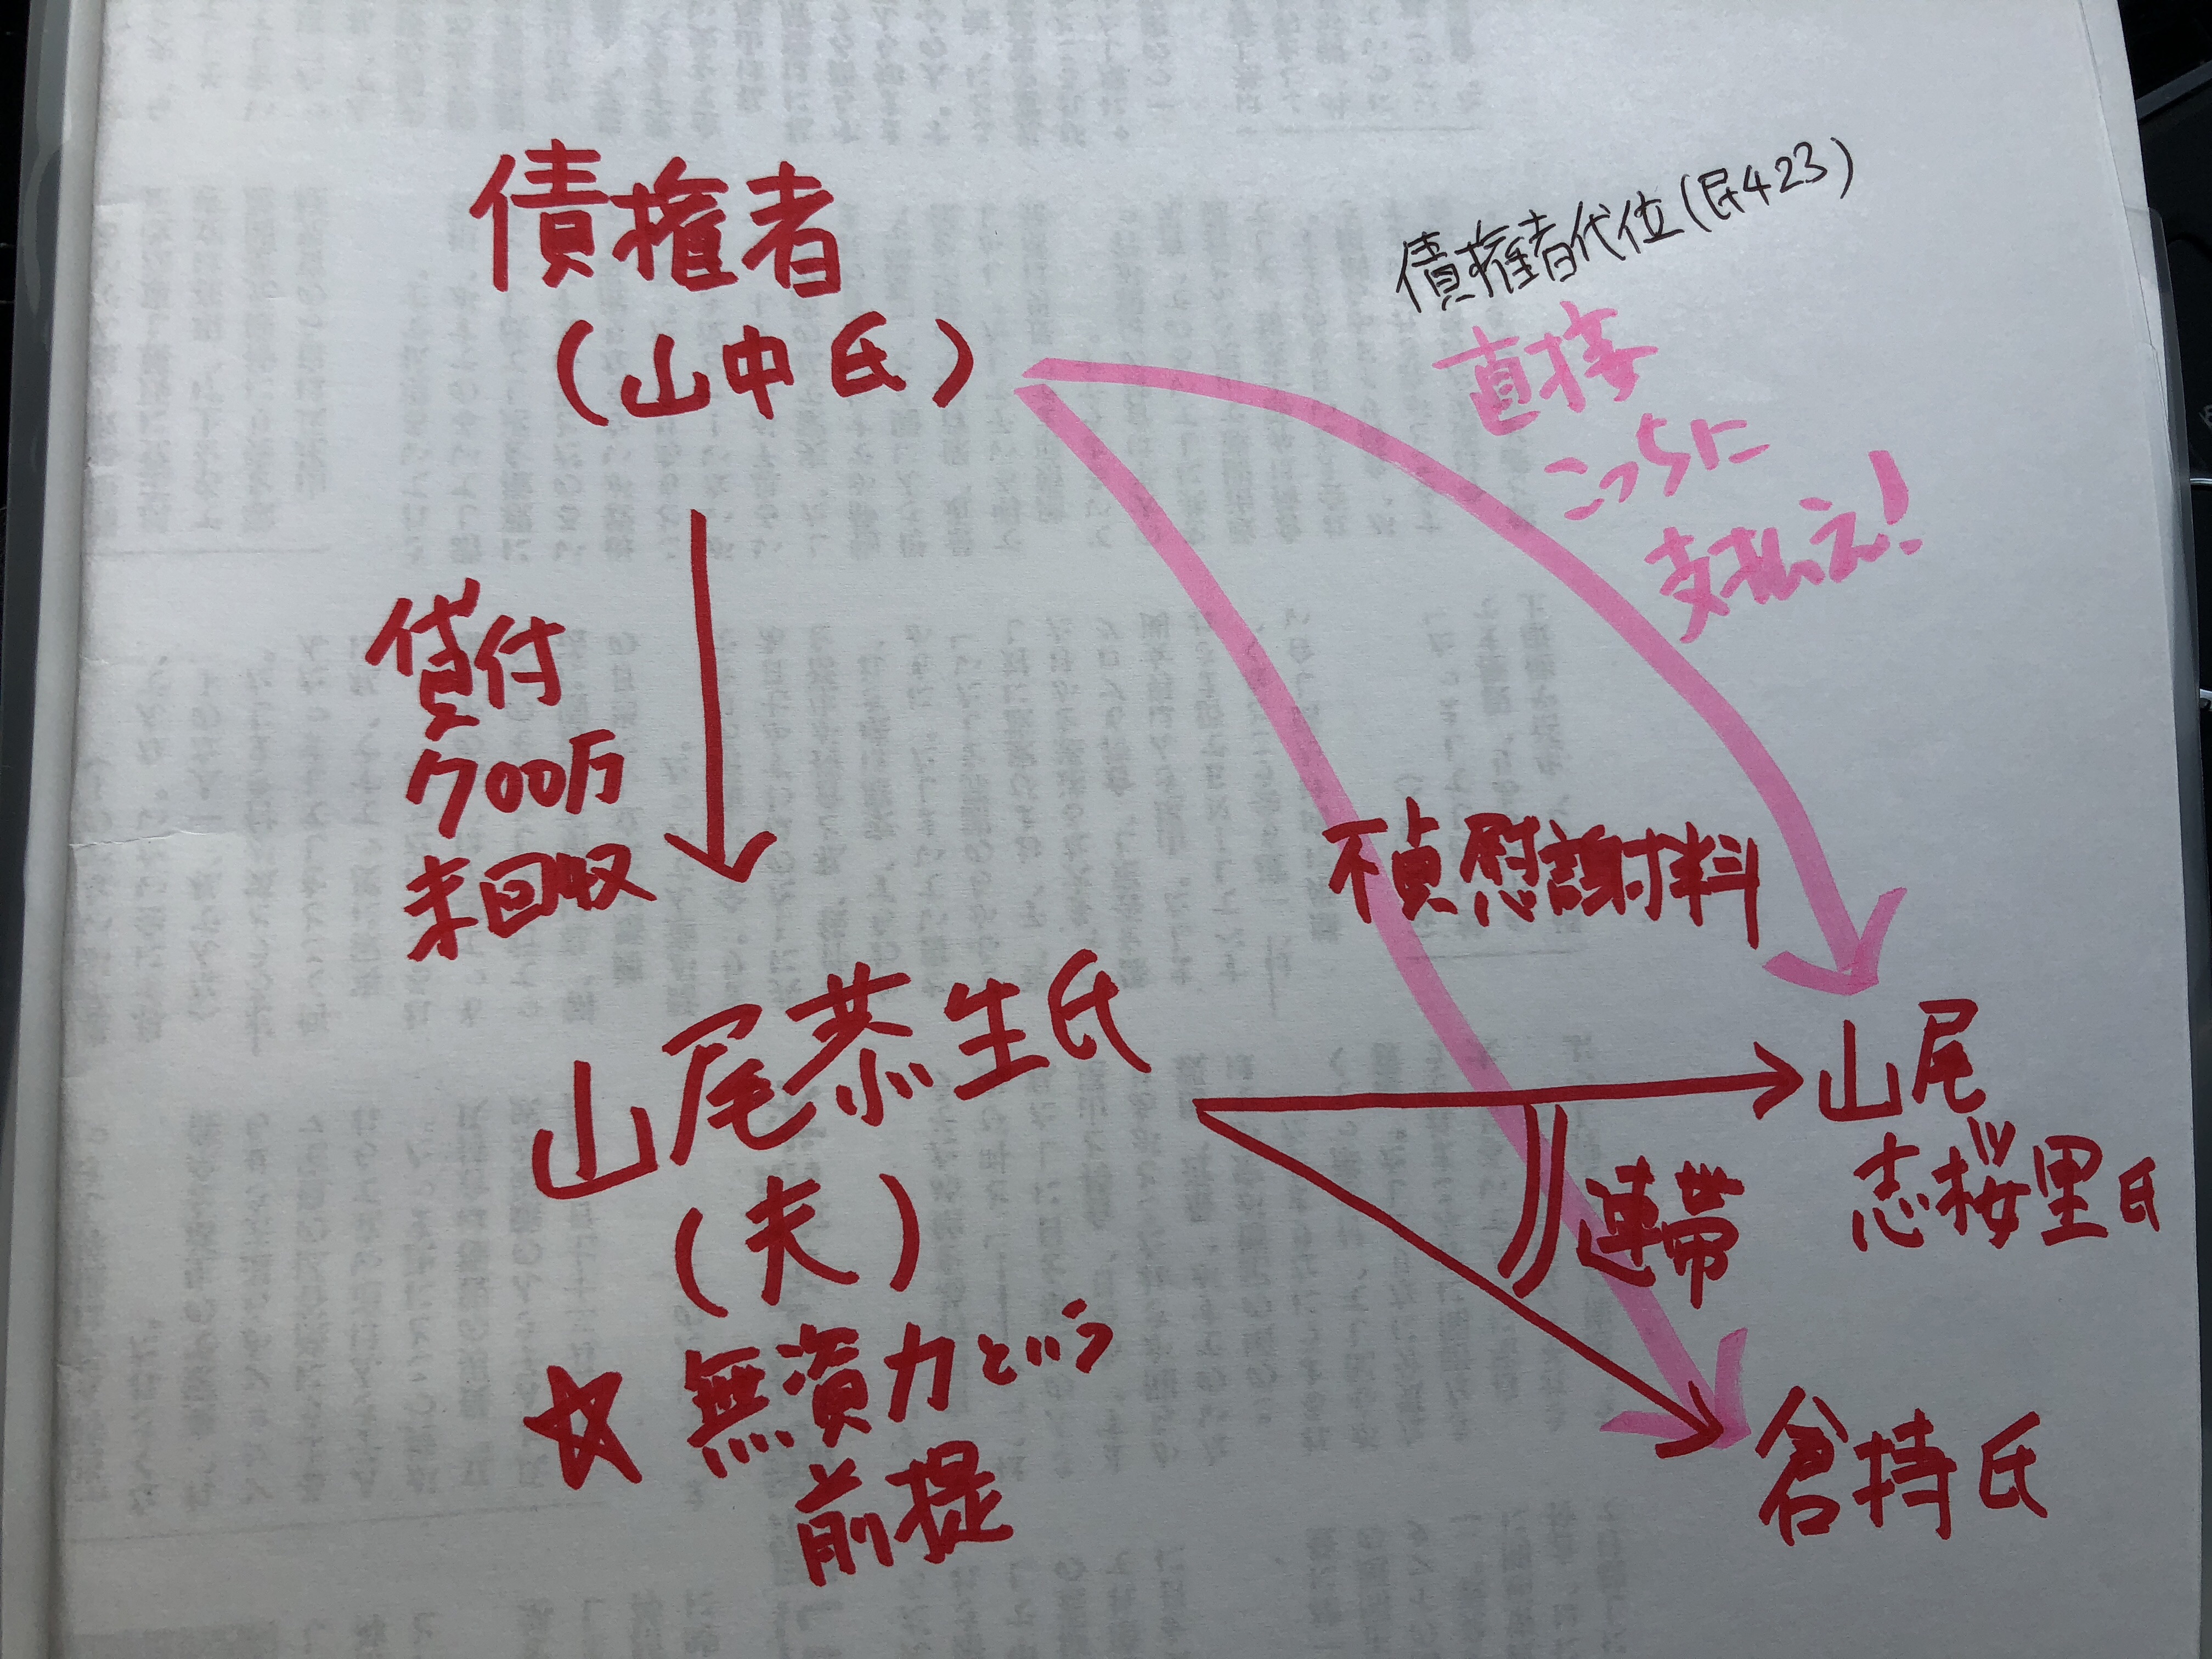 債権者
(山中氏)
債権者代位(民423)
直接
こっちに
支払え!
貸付
700万
未回収
不貞慰謝料
山尾恭生氏
(夫)
☆ 無資力という
前提
山尾
志桜里氏
連帯
倉持氏